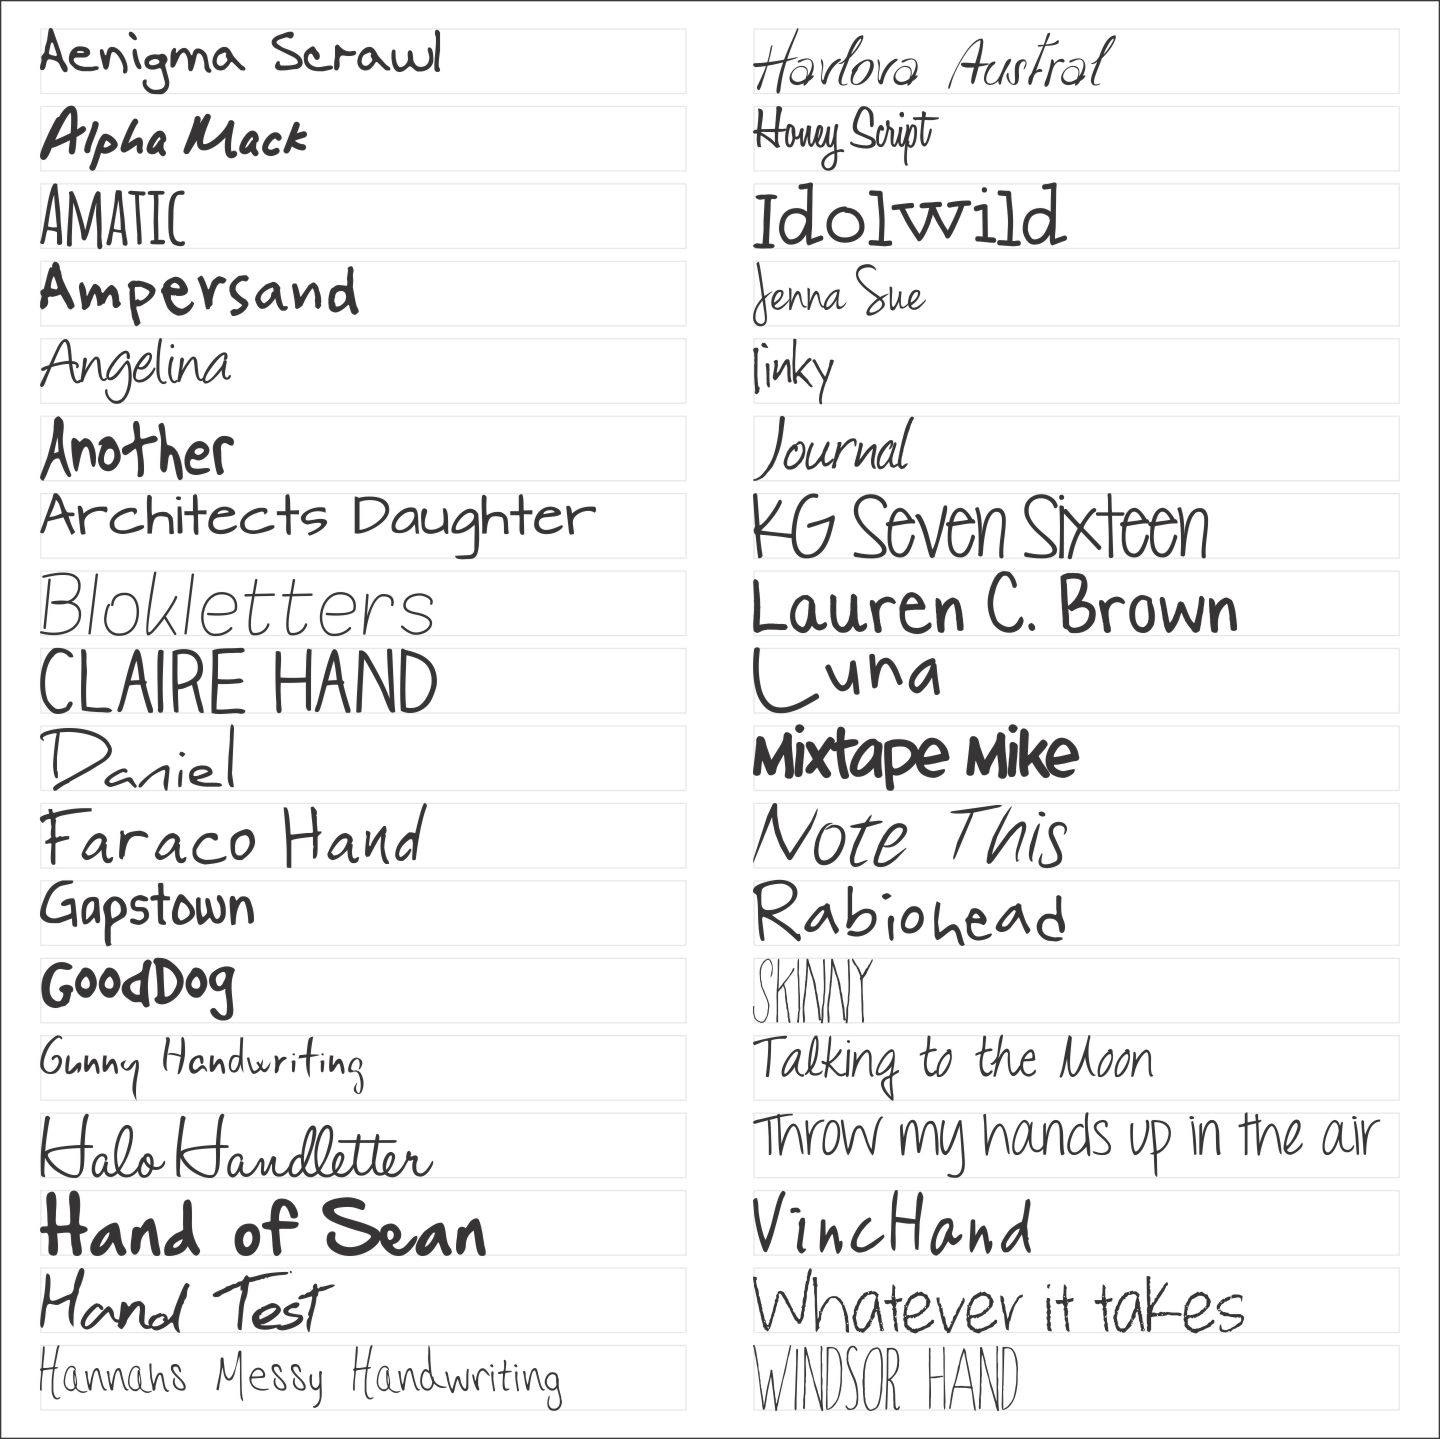 Aenigma Scrawl
Alpha Mack
AMATIC
Ampersand
Angelina
Another
Architects Daughter
Blokletters
CLAIRE HAND
Daniel
Faraco Hand
Gapstown
GoodDog
Gunny Handwriting
Halo Handletter
Hand of Sean
Hand Test
Hannahs Messy Handwriting
Havlova Austral
Honey Script
Idolwild
Jenna Sue
Jinky
Journal
KG Seven Sixteen
Lauren C. Brown
Luna
Mixtape Mike
Note This
Rabiohead
SKINNY
Talking to the Moon
Throw my hands up in the air
VincHand
Whatever it takes
WINDSOR HAND